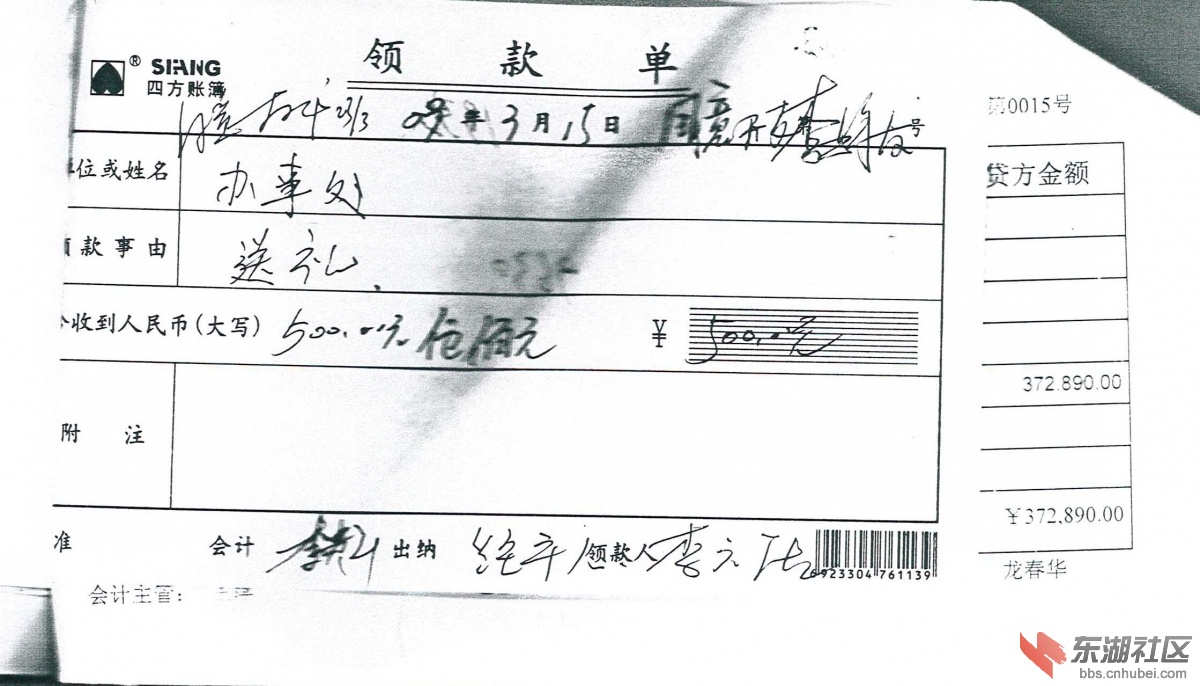 领 款 单
® SIFANG
四方账簿
年3月15日 号
第0015号
位或姓名 办事处
贷方金额
款事由 送礼
收到人民币(大写) 500.00元 伍佰元 ¥ 500.00元
372.890.00
附 注
¥372,890.00
准 会计 出纳 领款人 李
6923304761139
龙春华
会计主管:
东湖社区
bbs.cnhubei.com